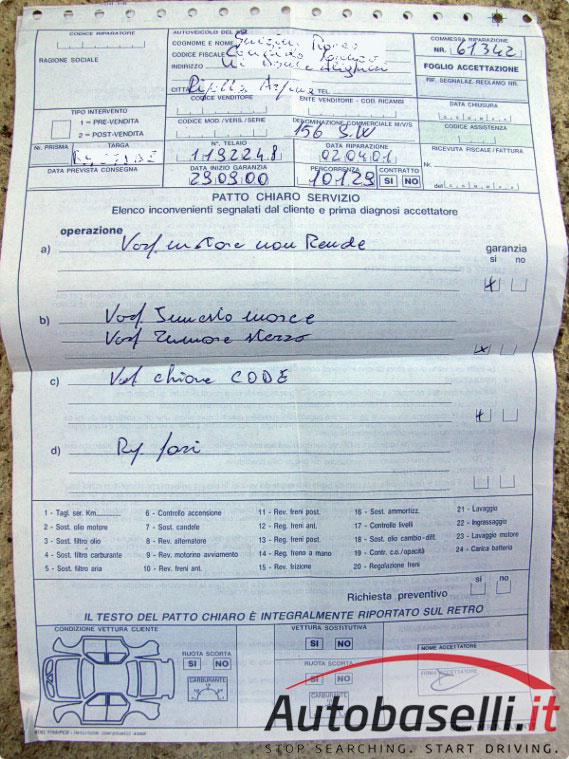 CODICE RIPARATORE
RAGIONE SOCIALE
AUTOVEICOLO DEL
COGNOME E NOME
CODICE FISCALE
INDIRIZZO
CITTÀ TEL.
COMMESSA RIPARAZIONE
NR. 61342
FOGLIO ACCETTAZIONE
RIF. SEGNALAZ. RECLAMO NR.
CODICE VENDITORE
ENTE VENDITORE - COD. RICAMBI
DATA CHIUSURA
TIPO INTERVENTO
1 = PRE-VENDITA
2 = POST-VENDITA
CODICE MOD./VERS./SERIE
DENOMINAZIONE COMMERCIALE M/V/S
156 S.W
CODICE ASSISTENZA
Nr. PRISMA
TARGA
N° TELAIO
1192248
DATA RIPARAZIONE
02.04.01
RICEVUTA FISCALE / FATTURA
DATA PREVISTA CONSEGNA
DATA INIZIO GARANZIA
29.09.00
PERCORRENZA
10129
CONTRATTO
SI NO
Nr.
del
PATTO CHIARO SERVIZIO
Elenco inconvenienti segnalati dal cliente e prima diagnosi accettatore
operazione
garanzia
si no
a) Vof. motore non Rende
b) Vof Innesto marce
Vof Rumore sterzo
c) Vof chiave CODE
d)
1 - Tagl. ser. Km
2 - Sost. olio motore
3 - Sost. filtro olio
4 - Sost. filtro carburante
5 - Sost. filtro aria
6 - Controllo accensione
7 - Sost. candele
8 - Rev. alternatore
9 - Rev. motorino avviamento
10 - Rev. freni ant.
11 - Rev. freni post.
12 - Reg. freni ant.
13 - Reg. freni post.
14 - Reg. freno a mano
15 - Rev. frizione
16 - Sost. ammortizz.
17 - Controllo livelli
18 - Sost. olio cambio-diff.
19 - Contr. c.o./opacità
20 - Regolazione freni
21 - Lavaggio
22 - Ingrassaggio
23 - Lavaggio motore
24 - Carica batteria
Richiesta preventivo
si no
IL TESTO DEL PATTO CHIARO È INTEGRALMENTE RIPORTATO SUL RETRO
CONDIZIONE VETTURA CLIENTE
RUOTA SCORTA
SI NO
CARBURANTE
VETTURA SOSTITUTIVA
SI NO
RUOTA SCORTA
SI NO
CARBURANTE
NOME ACCETTATORE
FIRMA ACCETTATORE
Autobaselli.it
STOP SEARCHING. START DRIVING.